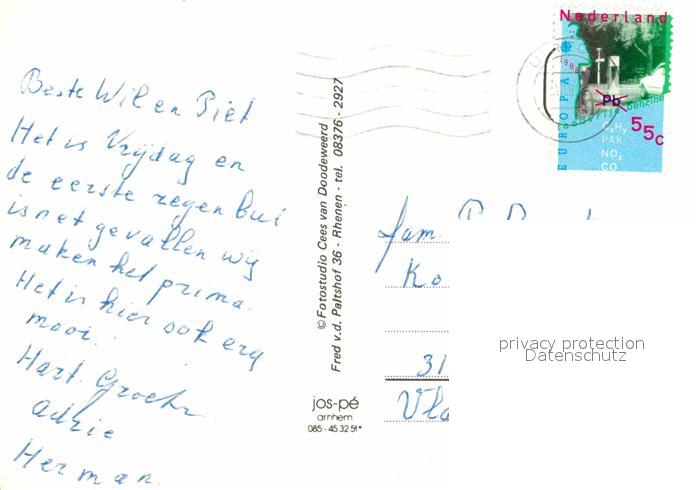 Beste Wil en Piet
Het is Vrijdag en
de eerste regen bui
is net gevallen wij
maken het prima.
Het is hier ook erg
mooi.
Hart. Groeten
Adrie
Herman.
© Fotostudio Cees van Doodeweerd
Fred v.d. Paltshof 36 - Rhenen - tel. 08376 - 2927
jos-pé
arnhem
085 - 45 32 51*
Nederland
EUROPA
1988
Pb
loodvrije benzine
55c
CxHy
PAK
NOx
CO
fam.
Ko
31
Vla
privacy protection
Datenschutz